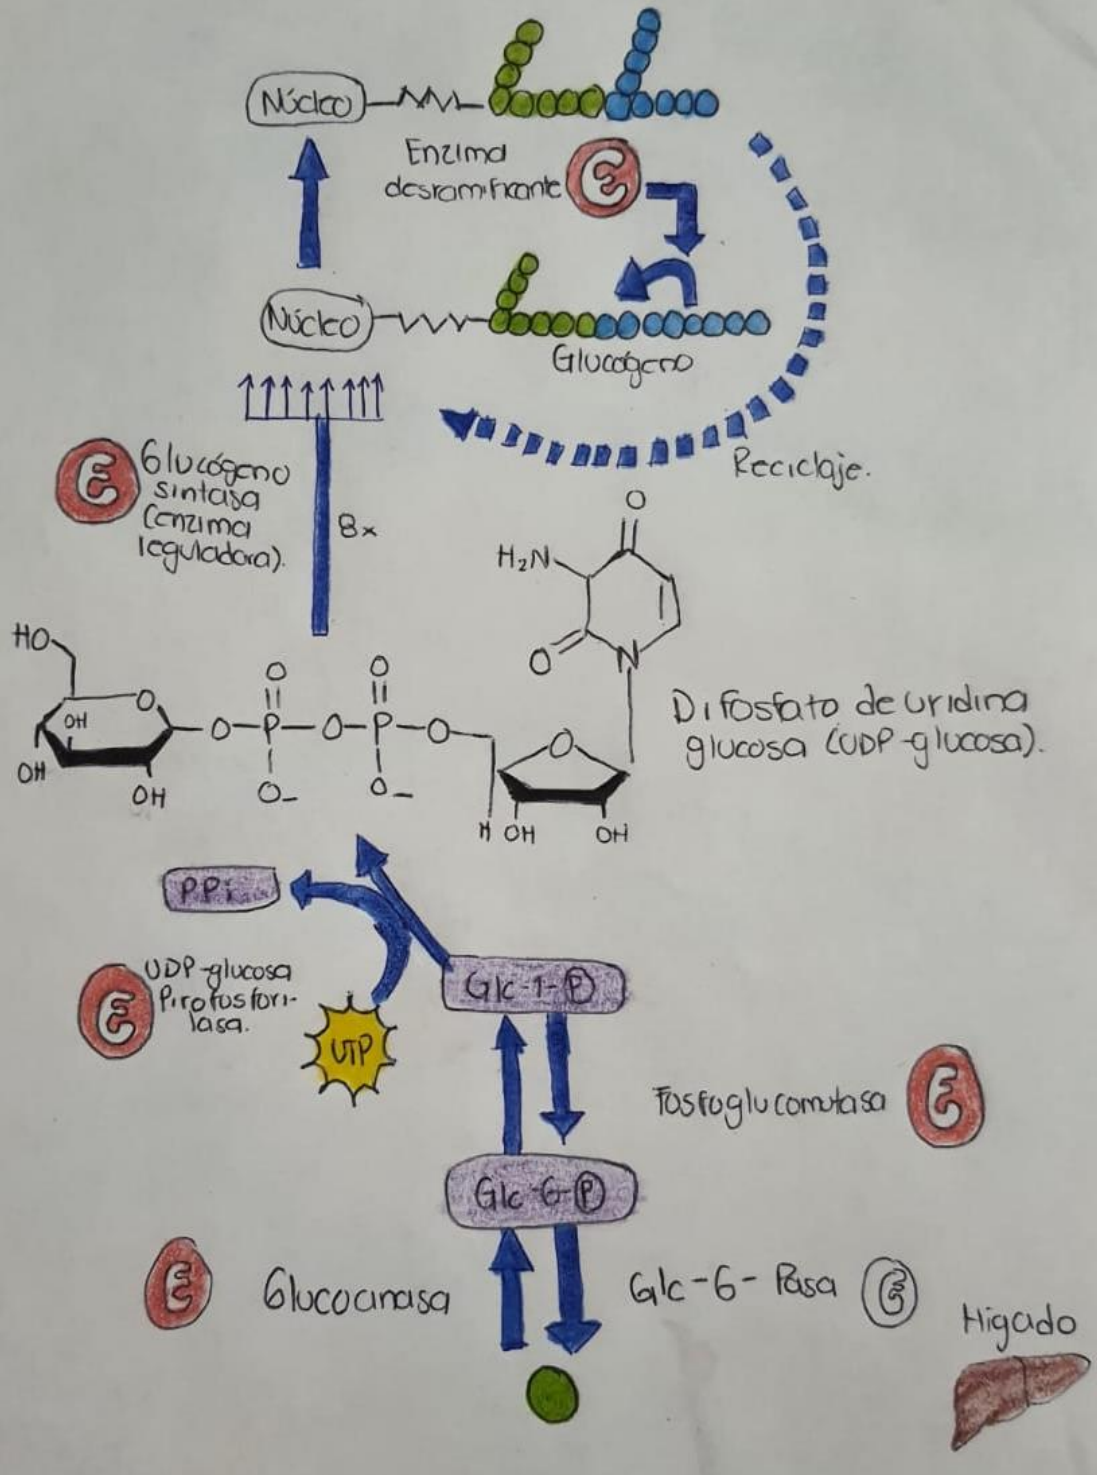 Núcleo
Enzima
desramificante E
Núcleo
Glucógeno
E Glucógeno
sintasa
(enzima
reguladora).
8x
Reciclaje.
O
H₂N
O
N
HO
O
OH
OH
OH
O
O
P
O
O
P
O
O-
O-
O
H OH
OH
Difosfato de uridina
glucosa (UDP-glucosa).
PPi
E UDP-glucosa
Pirofosfori-
lasa.
UTP
Glc-1-P
Fosfoglucomutasa E
Glc-6-P
E Glucocinasa
Glc-6-Pasa E
Hígado